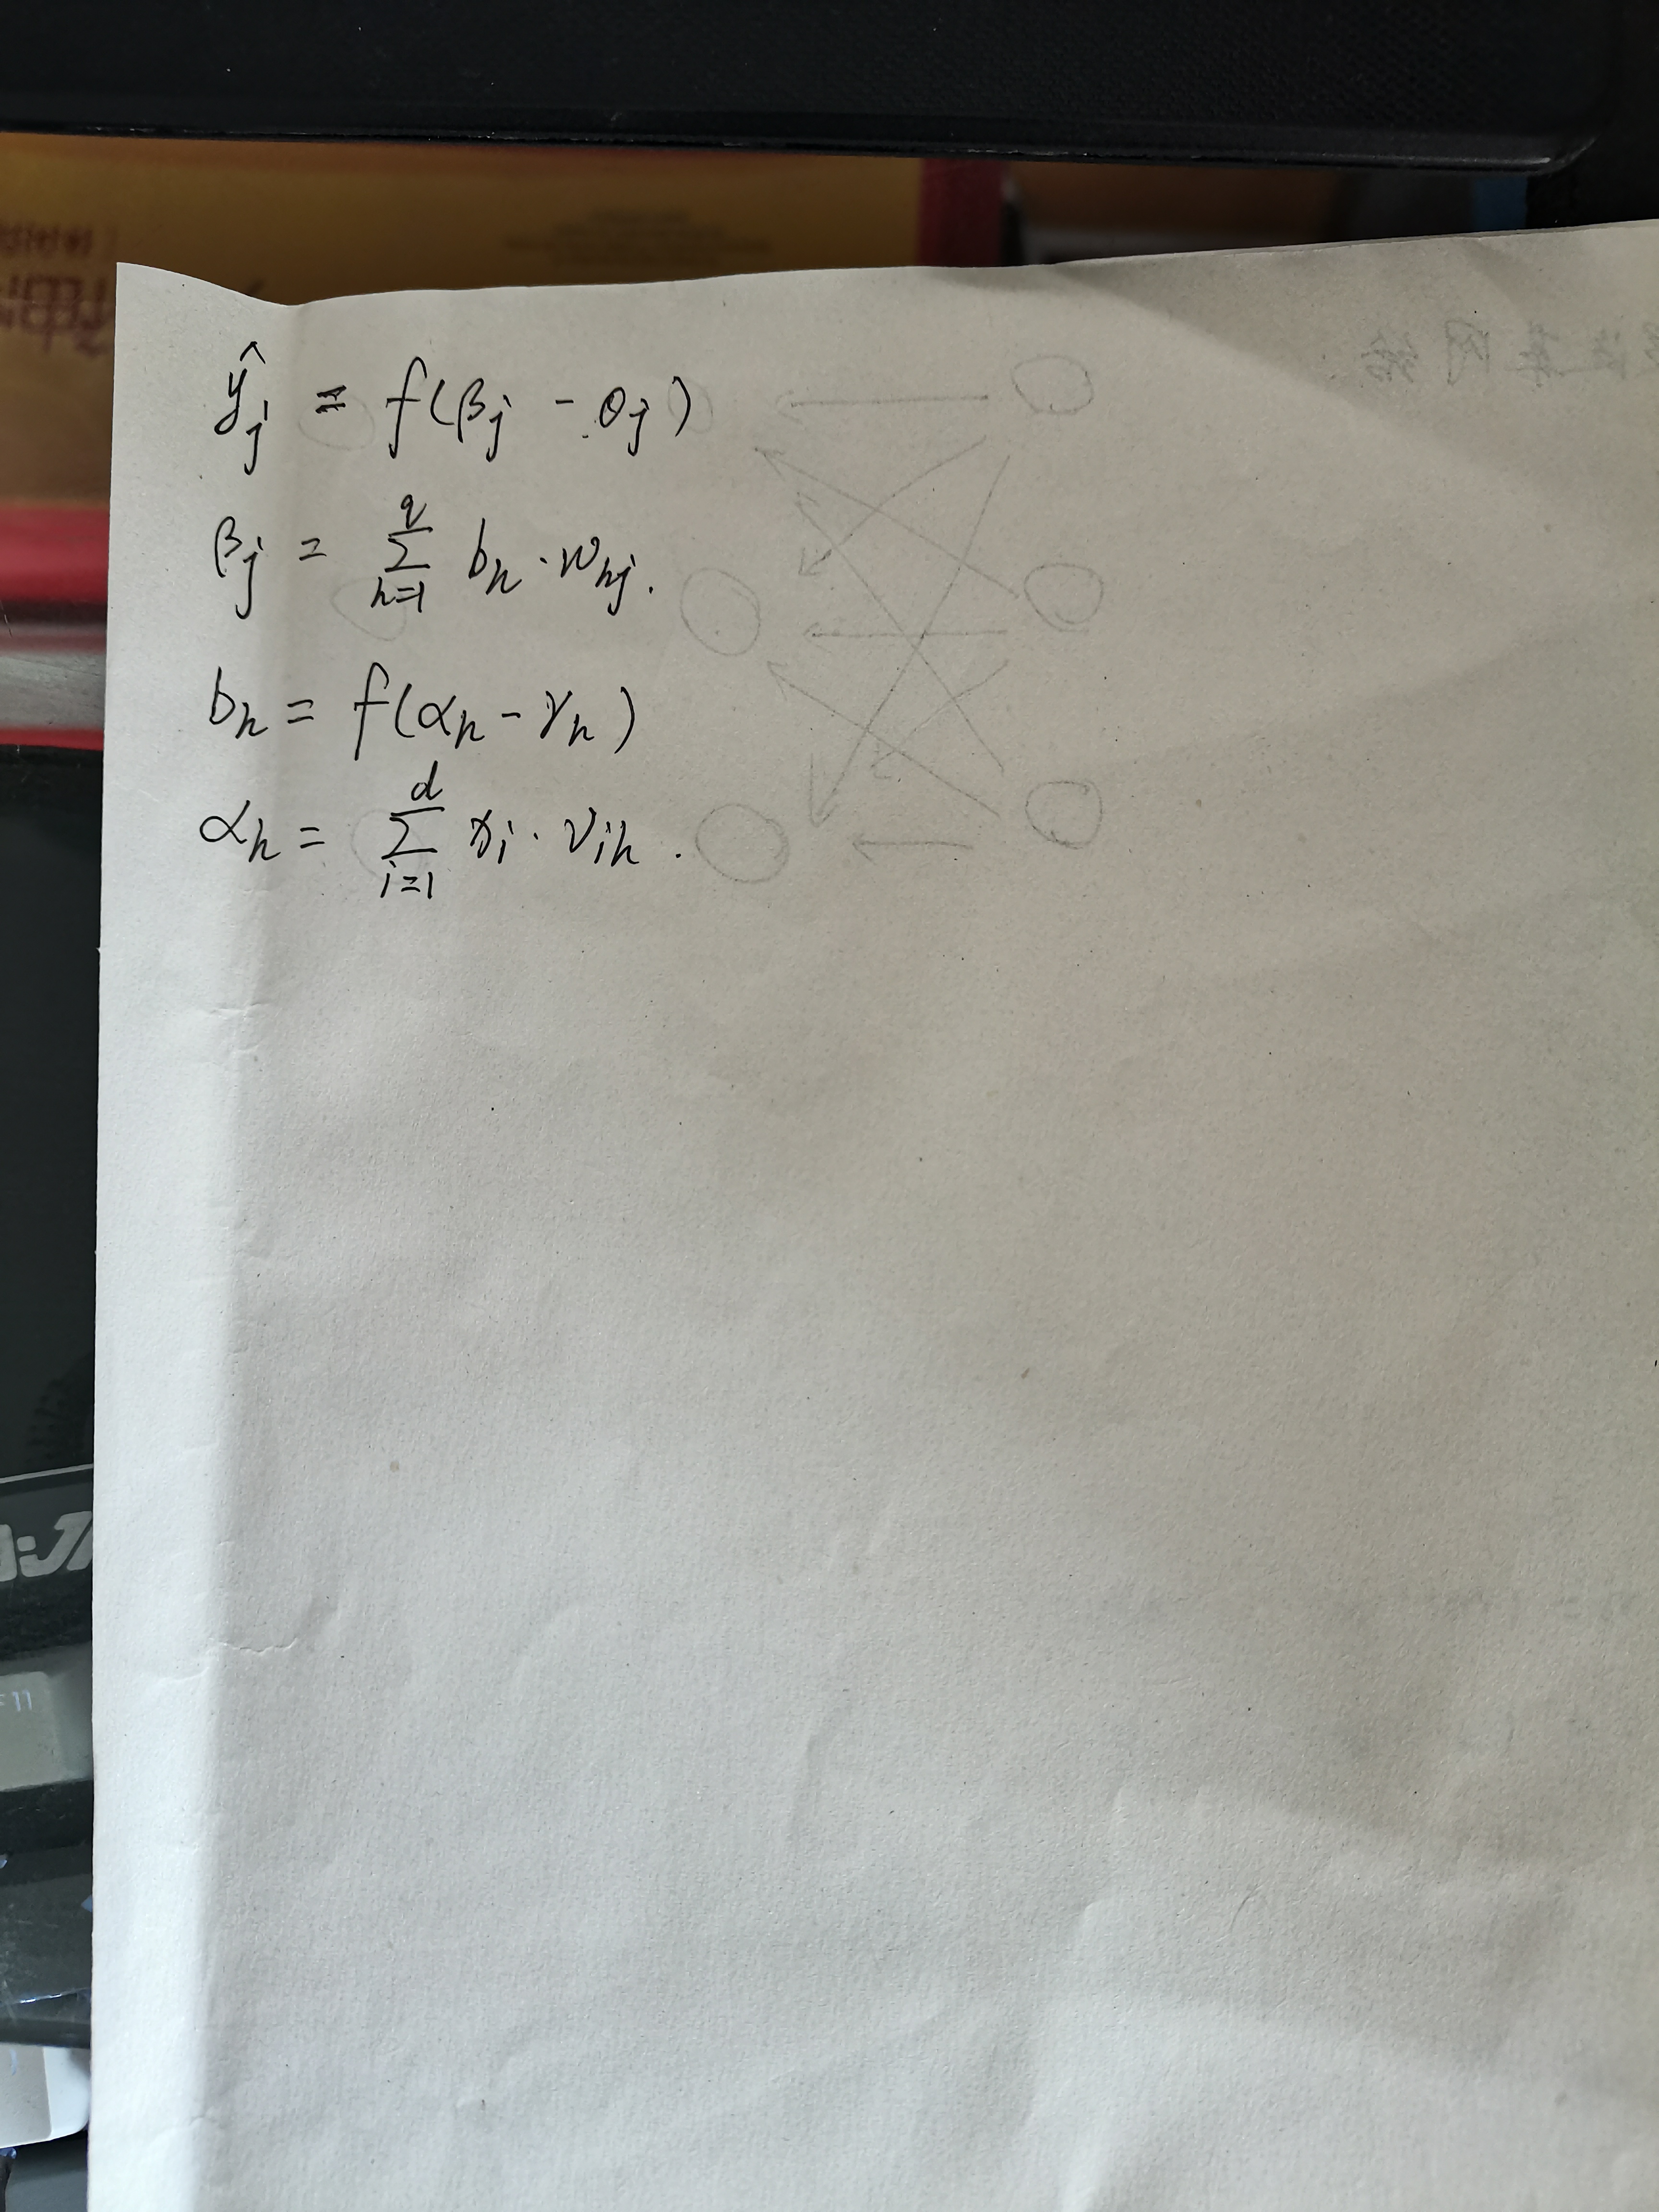 ŷⱼ = f(βⱼ - θⱼ)
βⱼ = ∑_{h=1}^{q} b_h · w_{hj}.
b_h = f(α_h - γ_h)
α_h = ∑_{i=1}^{d} x_i · v_{ih} .
F11